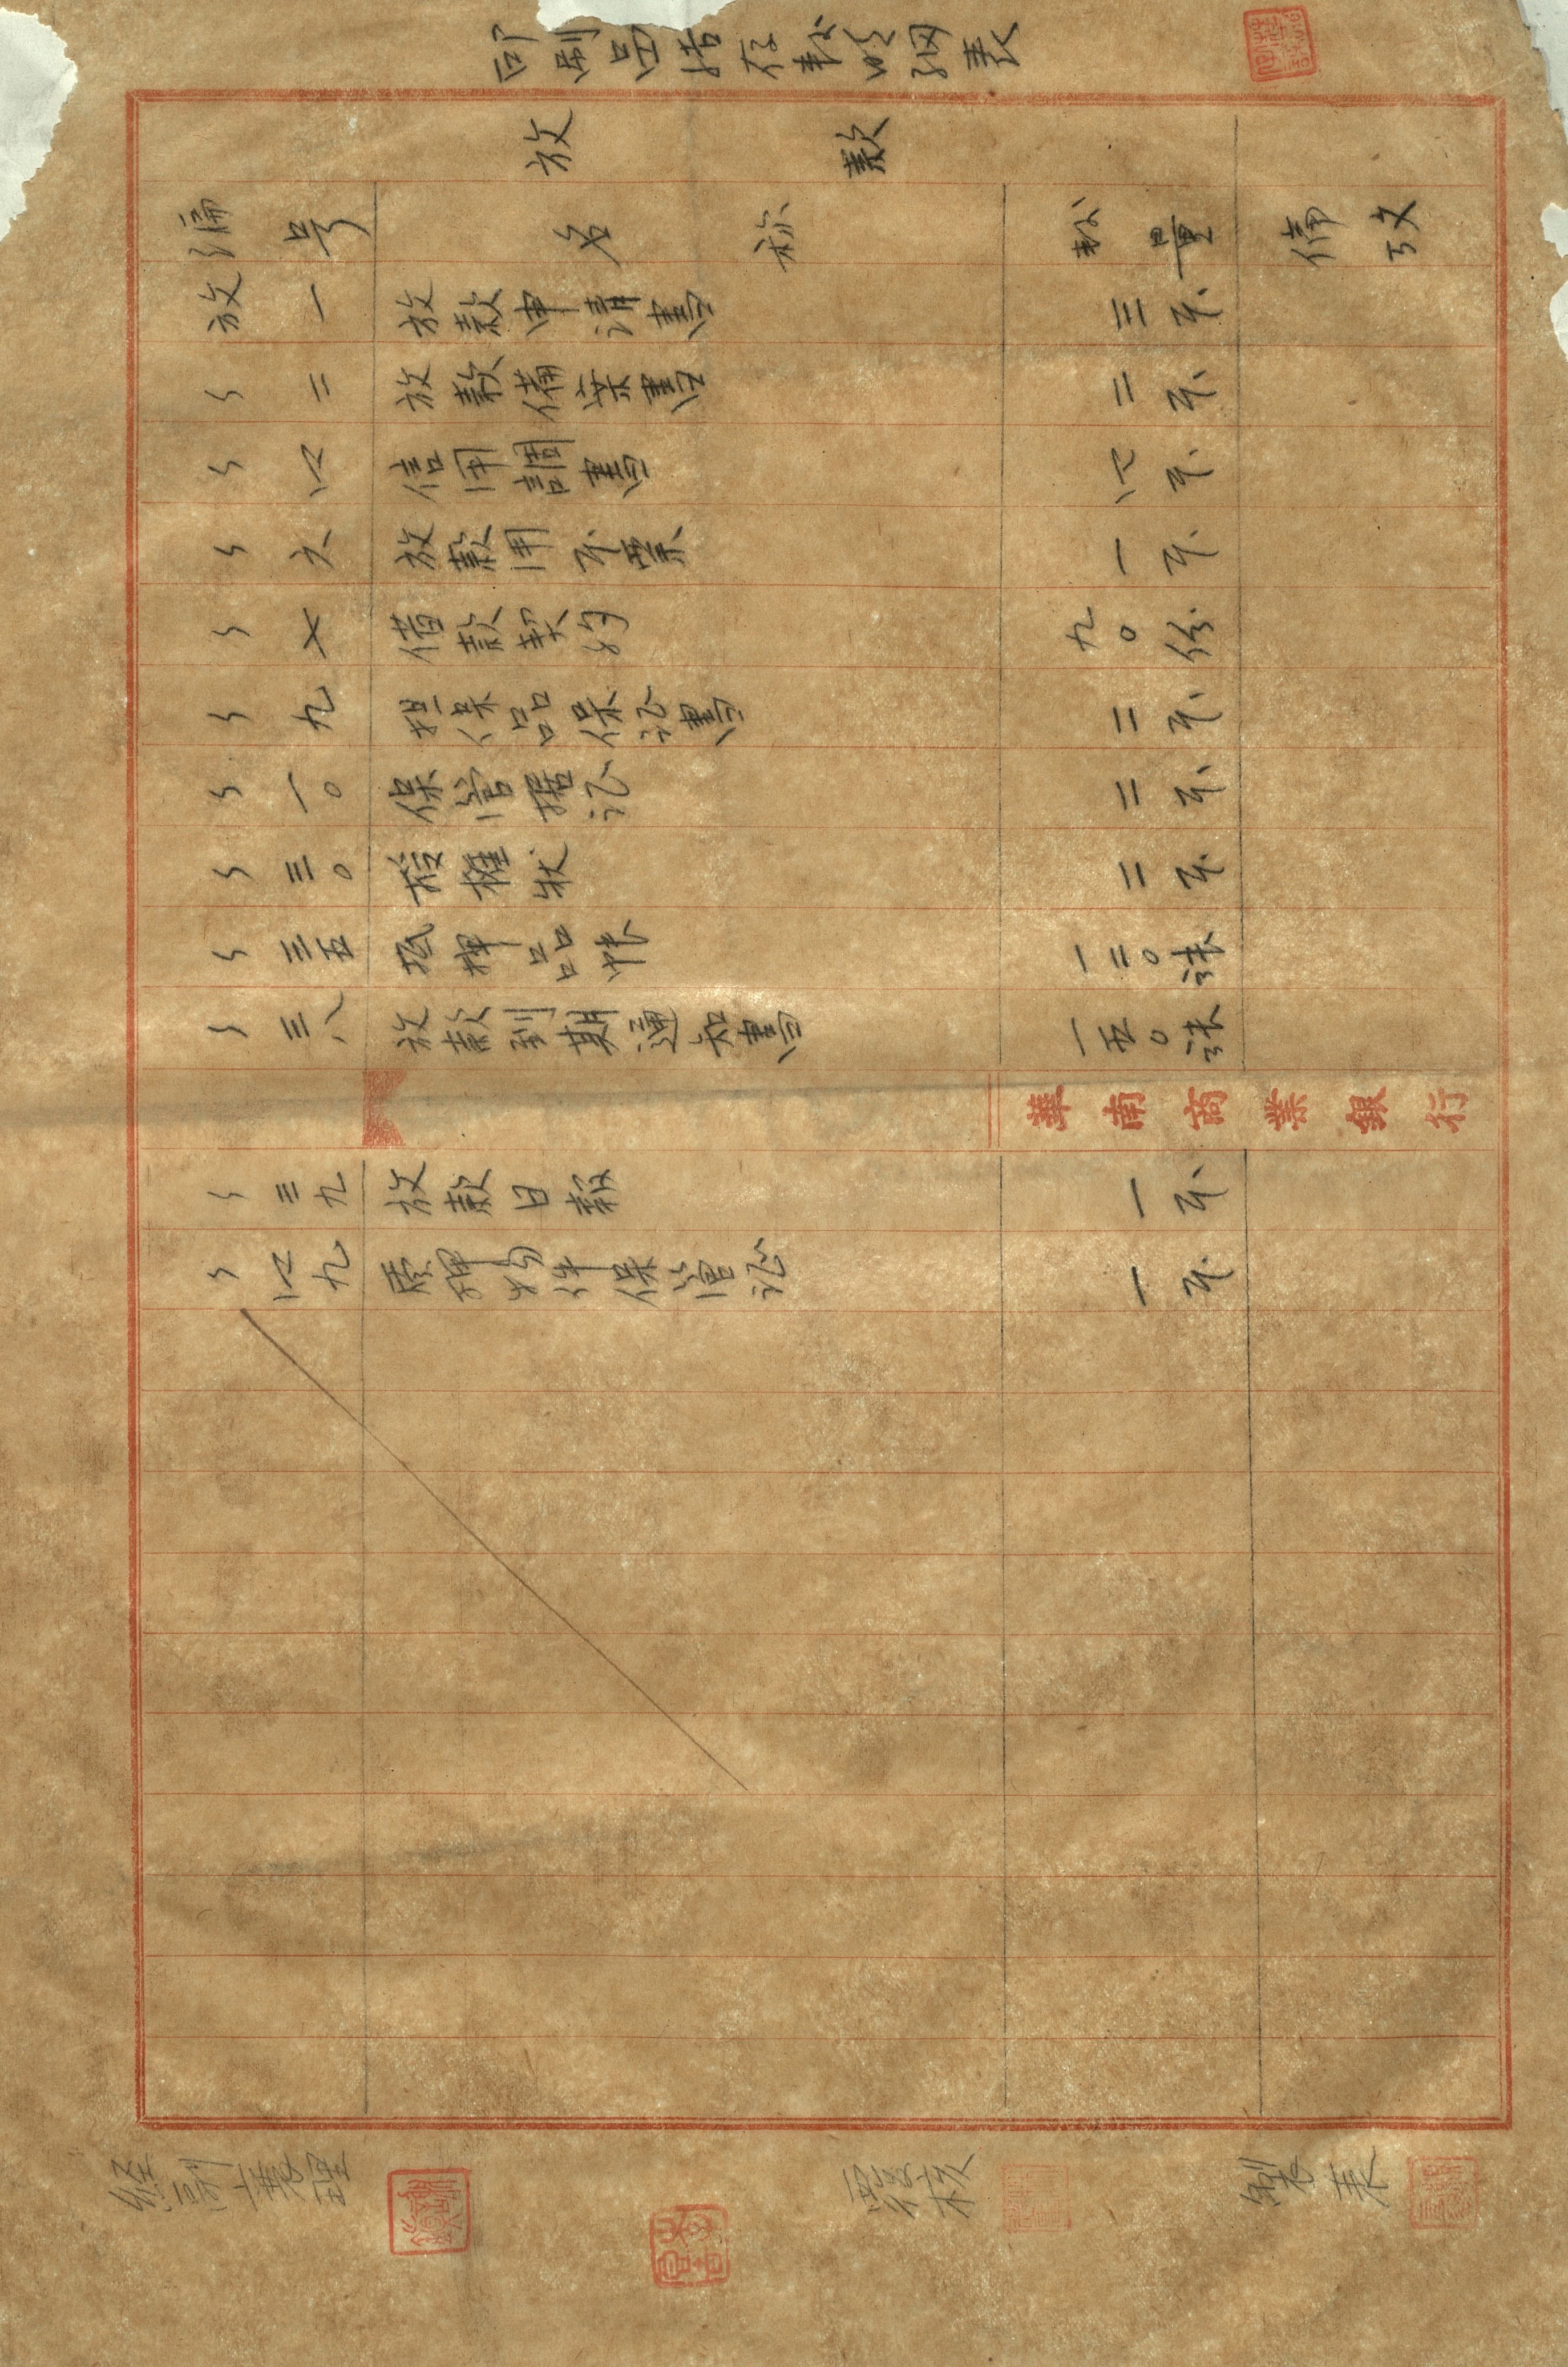 印刷品結存數明細表
放款
編号 名称 数量 備攷
放一 放款申請書 三本
〃二 放款備案書 二本
〃四 信用調書 四本
〃六 放款用本票 一本
〃七 借款契約 九〇份
〃九 担保品保記書 二本
〃一〇 保管据記 二本
〃三〇 授權狀 二本
〃三五 抵押品帳 一二〇張
〃三八 放款到期通知書 一五〇張
華南商業銀行
〃三九 放款日報 一本
〃四九 質押物件保管記 一本
經副襄理 覆核 製表